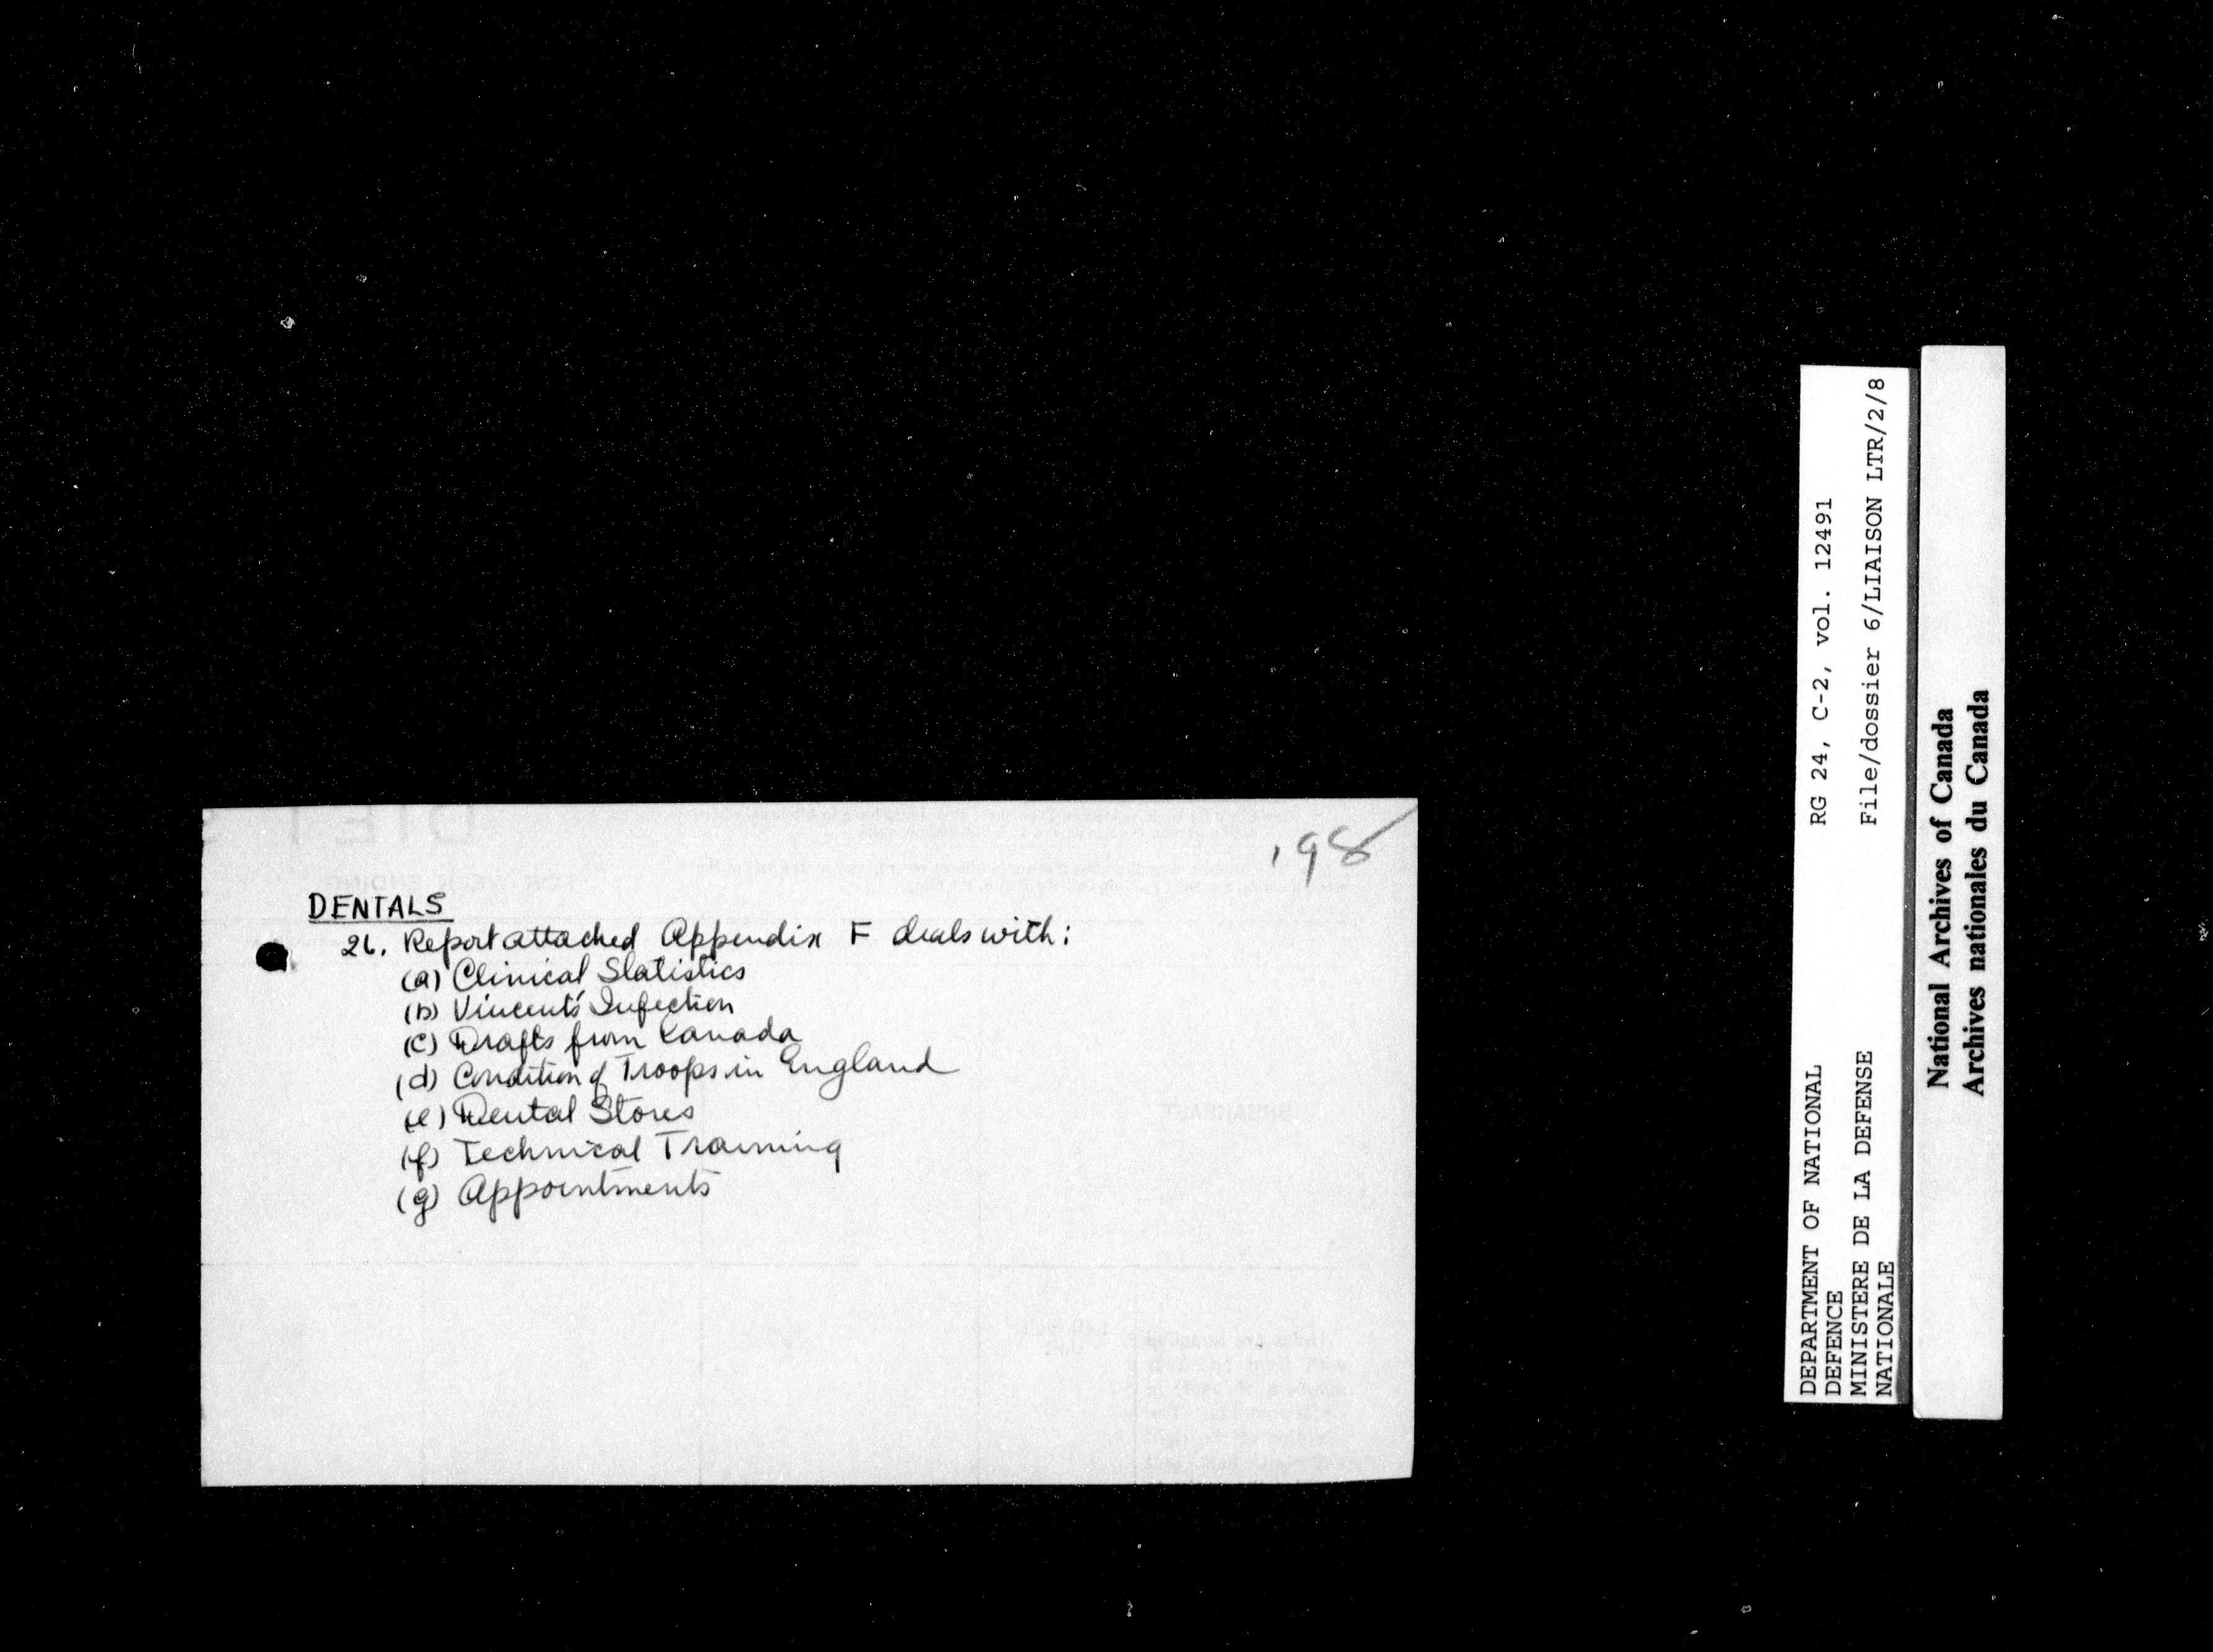 198
DENTALS
26. Report attached Appendix F deals with:
(a) Clinical Statistics
(b) Vincent's Infection
(c) Drafts from Canada
(d) Condition of Troops in England
(e) Dental Stores
(f) Technical Training
(g) Appointments
DEPARTMENT OF NATIONAL
DEFENCE
MINISTERE DE LA DEFENSE
NATIONALE
RG 24, C-2, vol. 12491
File/dossier 6/LIAISON LTR/2/8
National Archives of Canada
Archives nationales du Canada